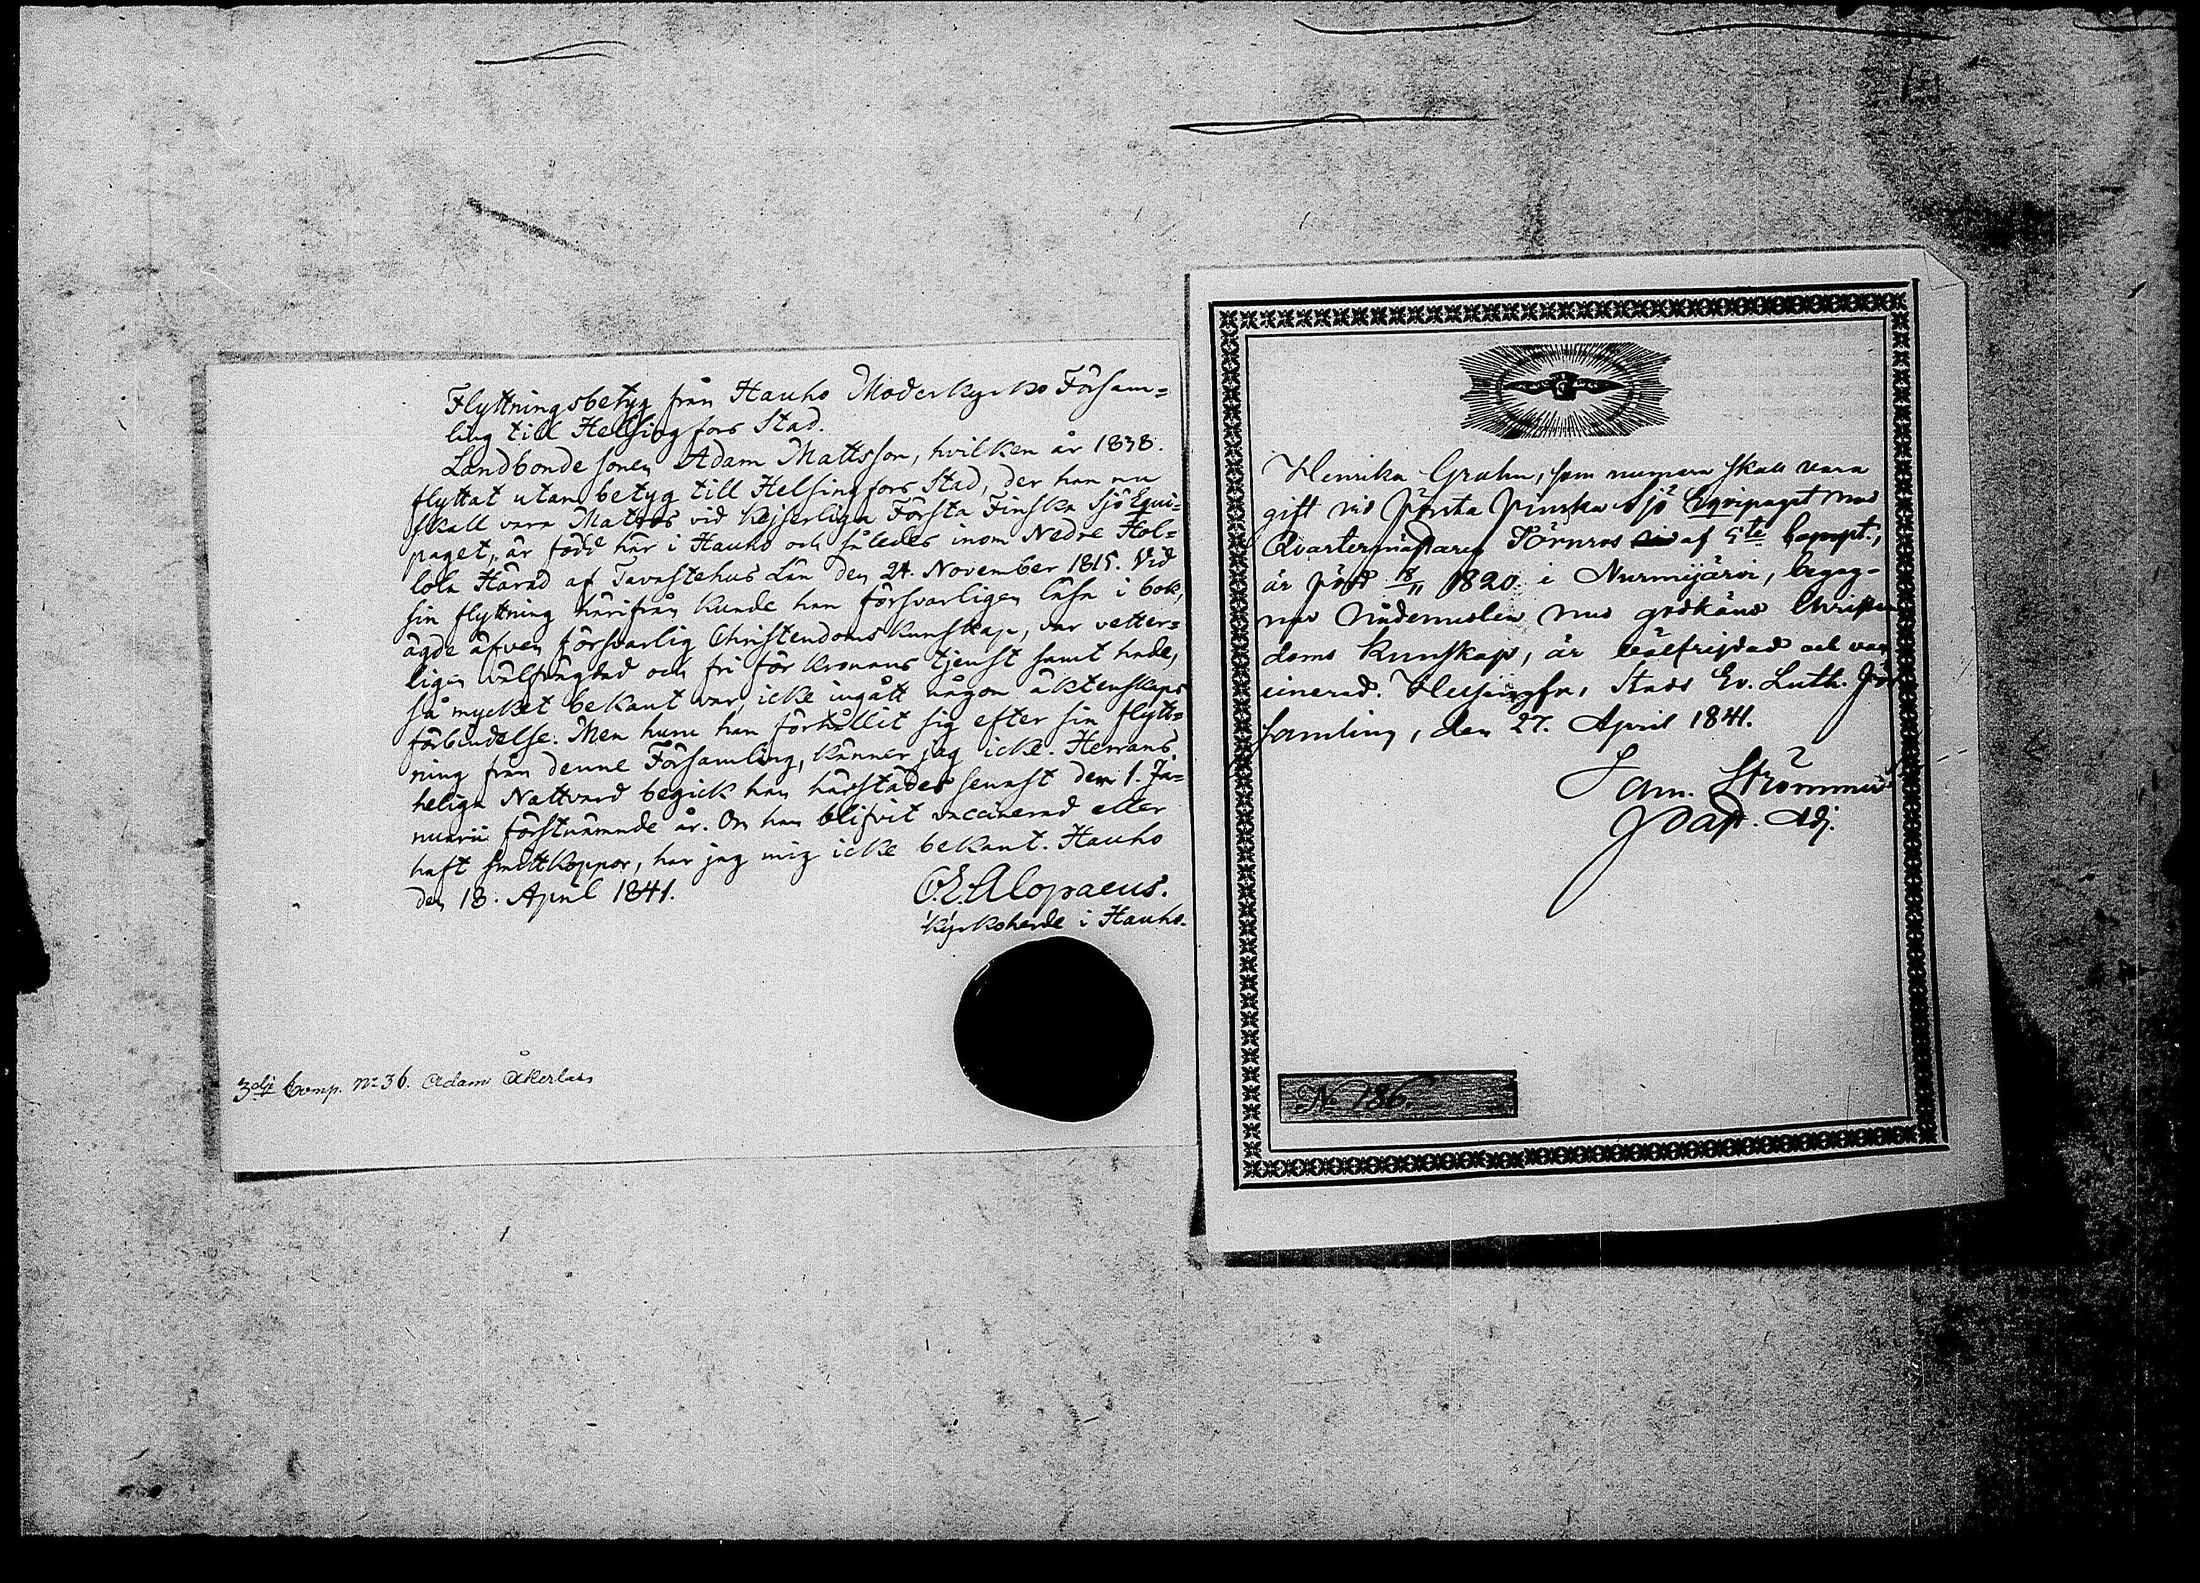 Flyttningsbetyg från Hauho Moderkyrko Försam=
ling till Helsingfors Stad.
Landbondesonen Adam Mattsson, hvilken år 1838.
flyttat utan betyg till Helsingfors Stad, der han nu
skall vara Matros vid Kejserliga Första Finska Sjö Equi=
paget, är född här i Hauho och således inom Nedre Hol=
lola Härad af Tavastehus Län den 24. November 1815. Vid
sin flyttning härifrån kunde han försvarligen läsa i bok,
ägde äfven försvarlig Christendoms Kunskap, var vetter=
ligen välfrägdad och fri för Kronans tjenst samt hade,
så mycket bekant var, icke ingått någon äktenskaps
förbindelse. Men huru han förhållit sig efter sin flytt=
ning från denne Församling, känner jag icke. Herrans
heliga Nattvard begick han härstädes senast den 1. Ja=
nuarii förstnämnde år. Om han blifvit vaccinerad eller
haft småttkoppor, har jag mig icke bekant. Hauho
den 18. April 1841.
C.E. Alopaeus.
Kyrkoherde i Hauho.
3dje Comp. No 36. Adam Åkerlass
Henrika Grahn, som numera skall vara
gift vid Första Finska Sjö Equipaget med
Qvartermästaren Törnros af 5te Compt.,
är född 18/11 1820 i Nurmijärvi, begag-
nar Nådemedlen med godkänd Christen
doms Kunskap, är välfrejdad och vac
cinerad. Helsingfors Stads Ev. Luth. För
samling, den 27. April 1841.
Sam. Strömmer
Past. Adj.
No 136.